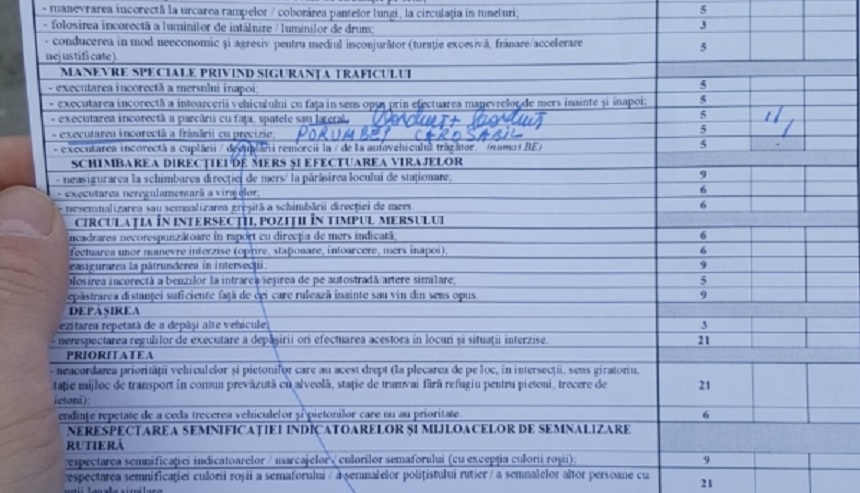 - manevrarea incorectă la urcarea rampelor / coborârea pantelor lungi, la circulația în tuneluri; 5
- folosirea incorectă a luminilor de întâlnire / luminilor de drum; 3
- conducerea în mod neeconomic și agresiv pentru mediul înconjurător (turație excesivă, frânare/accelerare 5
nejustificate).
MANEVRE SPECIALE PRIVIND SIGURANȚA TRAFICULUI
- executarea incorectă a mersului înapoi; 5
- executarea incorectă a întoarcerii vehiculului cu fața în sens opus prin efectuarea manevrelor de mers înainte și înapoi; 5
- executarea incorectă a parcării cu fața, spatele sau lateral; 5
- executarea incorectă a frânării cu precizie; PORUMBEI CAROSABIL 5
- executarea incorectă a cuplării / decuplării remorcii la / de la autovehiculul trăgător. (numai BE) 5
SCHIMBAREA DIRECȚIEI DE MERS ȘI EFECTUAREA VIRAJELOR
- neasigurarea la schimbarea direcției de mers/ la părăsirea locului de staționare; 9
- executarea neregulamentară a virajelor; 6
- nesemnalizarea sau semnalizarea greșită a schimbării direcției de mers. 6
CIRCULAȚIA ÎN INTERSECȚII, POZIȚII ÎN TIMPUL MERSULUI
ncadrarea necorespunzătoare în raport cu direcția de mers indicată; 6
fectuarea unor manevre interzise (oprire, staționare, întoarcere, mers înapoi); 6
easigurarea la pătrunderea în intersecții; 9
olosirea incorectă a benzilor la intrarea/ieșirea de pe autostradă/artere similare; 5
epăstrarea distanței suficiente față de cei care rulează înainte sau vin din sens opus. 9
DEPĂȘIREA
ezitarea repetată de a depăși alte vehicule; 3
- nerespectarea regulilor de executare a depășirii ori efectuarea acestora în locuri și situații interzise. 21
PRIORITATEA
- neacordarea priorității vehiculelor și pietonilor care au acest drept (la plecarea de pe loc, în intersecții, sens giratoriu,
tație mijloc de transport în comun prevăzută cu alveolă, stație de tramvai fără refugiu pentru pietoni, trecere de 21
ietoni);
endințe repetate de a ceda trecerea vehiculelor și pietonilor care nu au prioritate. 6
NERESPECTAREA SEMNIFICAȚIEI INDICATOARELOR ȘI MIJLOACELOR DE SEMNALIZARE
RUTIERĂ
respectarea semnificației indicatoarelor / marcajelor / culorilor semaforului (cu excepția culorii roșii); 9
respectarea semnificației culorii roșii a semaforului / a semnalelor polițistului rutier / a semnalelor altor persoane cu 21
legale similare